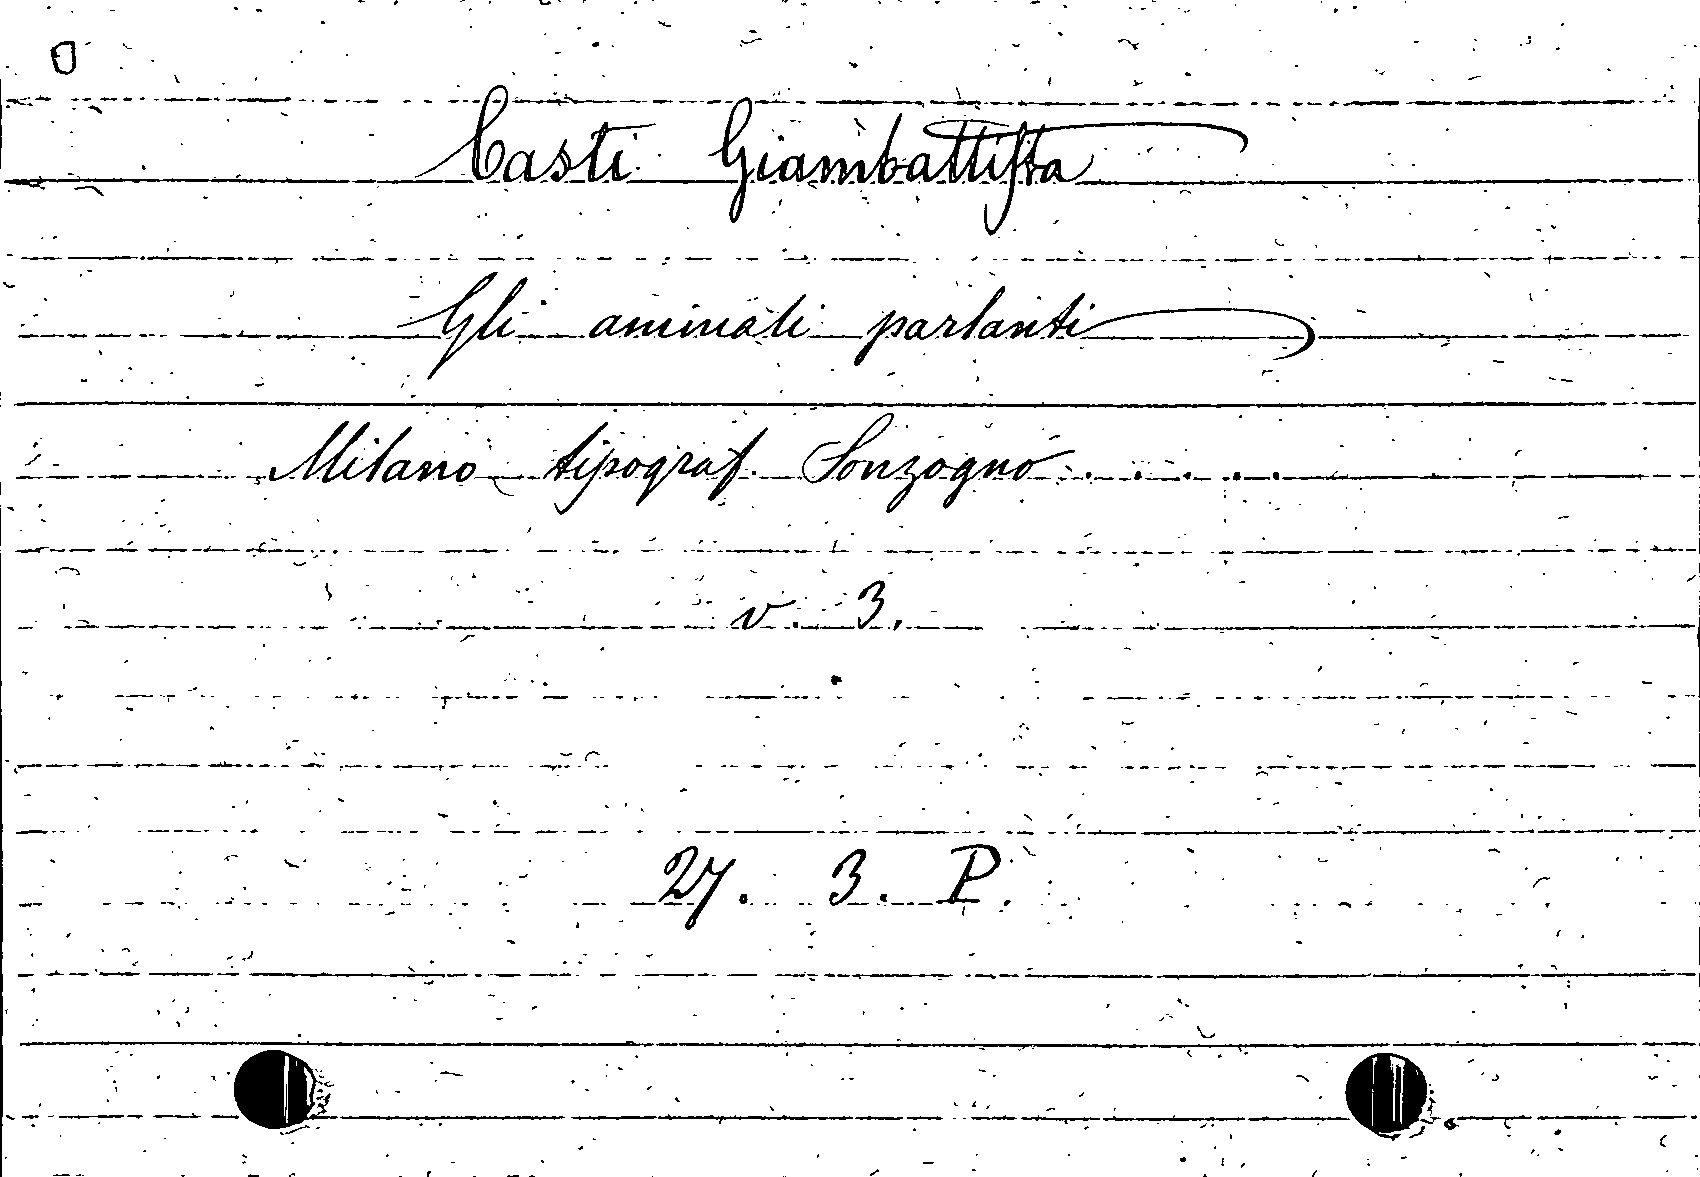 Casti Giambattista
Gli animali parlanti
Milano tipograf. Sonzogno . . . . .
v. 3.
27. 3. P.